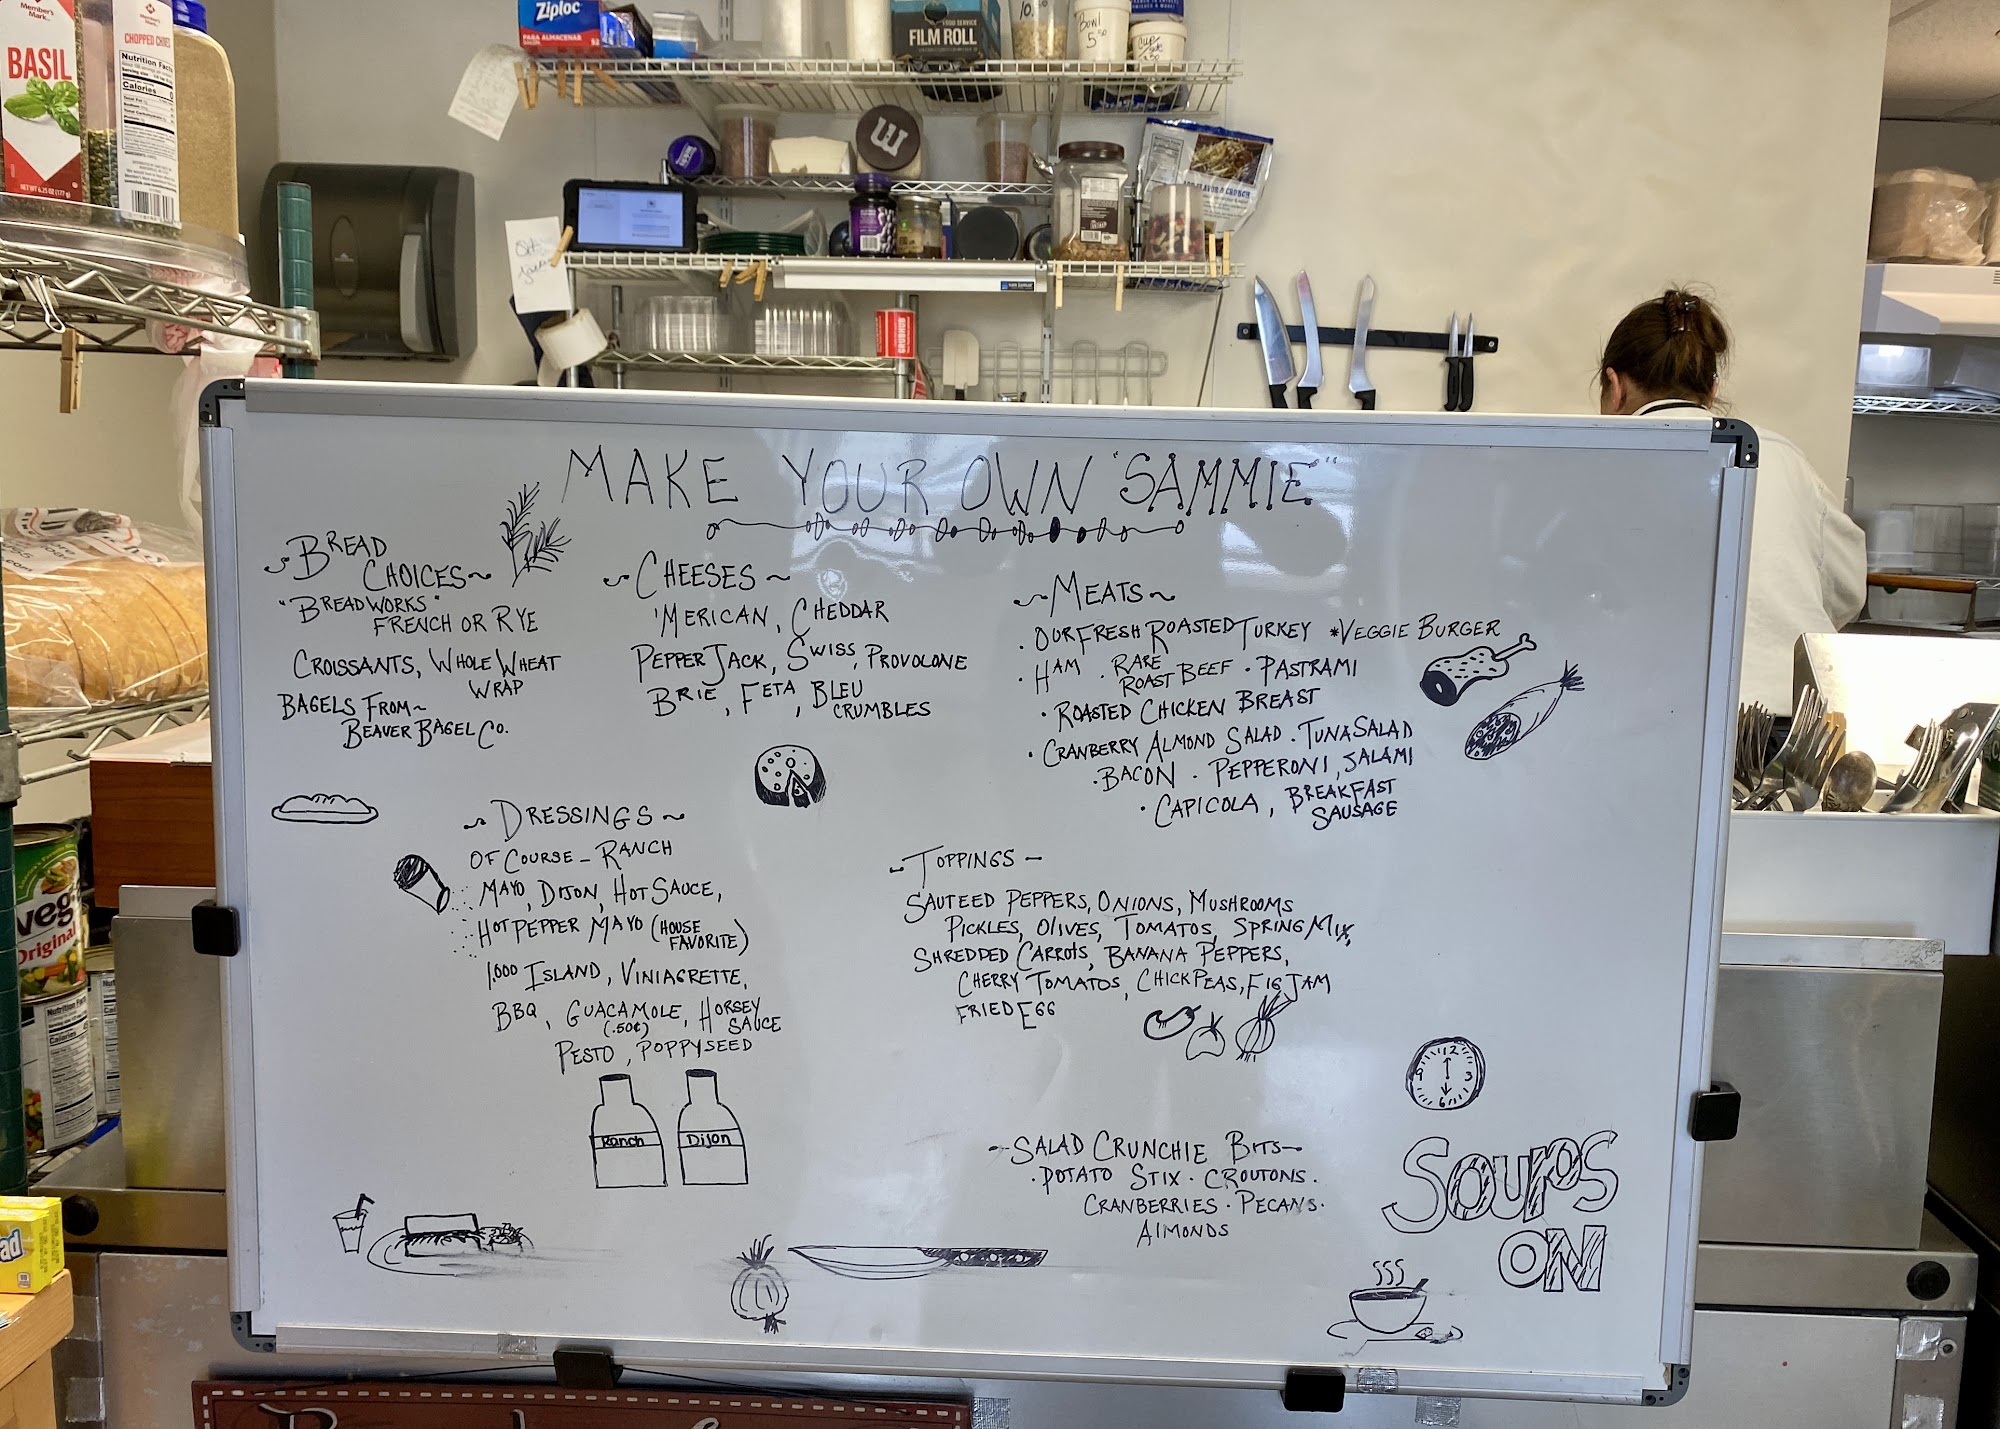 Member's Mark
BASIL
NET WT 6.25 OZ (177 g)
Member's Mark
CHOPPED CHIVES
Nutrition Facts
Calories 0
Ziploc
PARA ALMACENAR
FOOD SERVICE
FILM ROLL
Bowl
5.50
Cup
GRUBHUB
MAKE YOUR OWN "SAMMIE"
~BREAD
CHOICES~
"BREADWORKS"
FRENCH OR RYE
CROISSANTS, WHOLE WHEAT
WRAP
BAGELS FROM~
BEAVER BAGEL CO.
~CHEESES~
'MERICAN, CHEDDAR
PEPPER JACK, SWISS, PROVOLONE
BRIE, FETA, BLEU
CRUMBLES
~MEATS~
· OUR FRESH ROASTED TURKEY *VEGGIE BURGER
· HAM · RARE
ROAST BEEF · PASTRAMI
· ROASTED CHICKEN BREAST
· CRANBERRY ALMOND SALAD · TUNA SALAD
· BACON · PEPPERONI, SALAMI
· CAPICOLA, BREAKFAST
SAUSAGE
~DRESSINGS~
OF COURSE - RANCH
MAYO, DIJON, HOT SAUCE,
HOT PEPPER MAYO (HOUSE
FAVORITE)
1,000 ISLAND, VINIAGRETTE,
BBQ, GUACAMOLE, HORSEY
(.50¢) SAUCE
PESTO, POPPYSEED
Ranch
Dijon
~TOPPINGS-
SAUTEED PEPPERS, ONIONS, MUSHROOMS
PICKLES, OLIVES, TOMATOS, SPRING MIX,
SHREDDED CARROTS, BANANA PEPPERS,
CHERRY TOMATOS, CHICKPEAS, FIG JAM
FRIED EGG
12
9 3
6
-SALAD CRUNCHIE BITS-
· POTATO STIX · CROUTONS ·
CRANBERRIES · PECANS ·
ALMONDS
SOUPS
ON
Veg
Original
Nutrition Facts
Calories